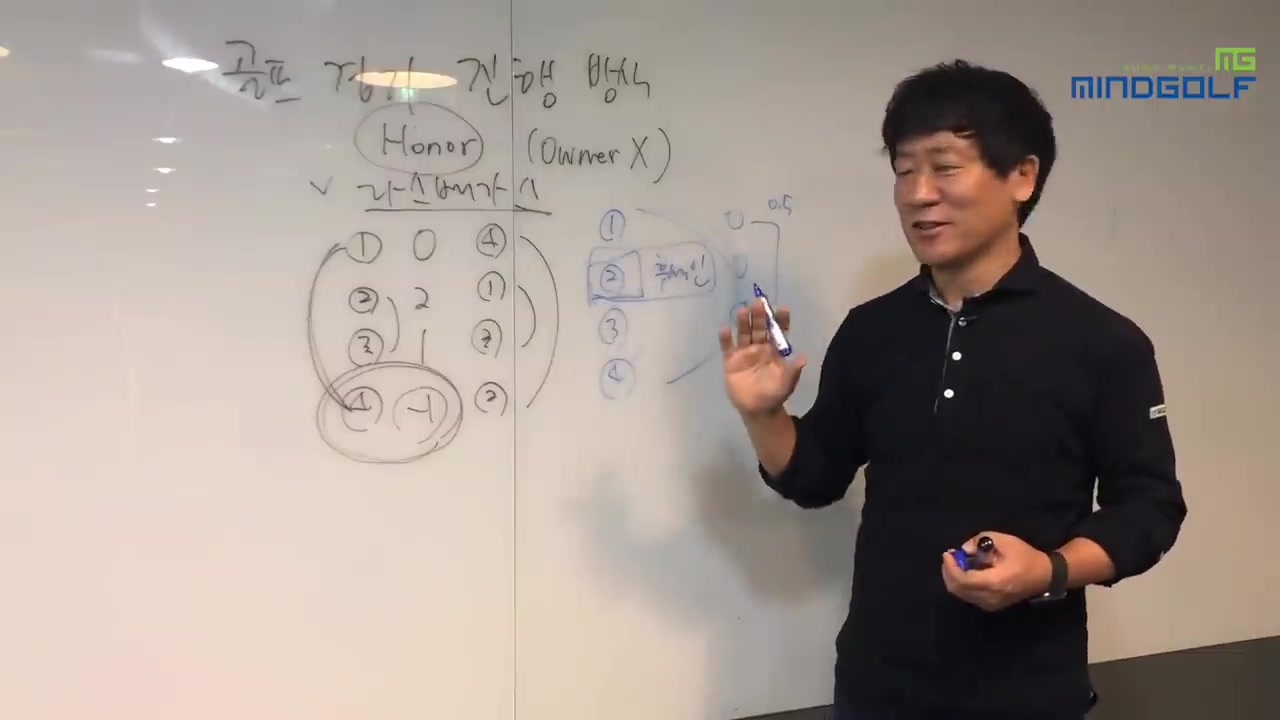 골프 경기 진행 방식
Honor (Owner X)
✓ 라스베가스
① 0 ④
② 2 ①
③ 1 ③
④ -1 ②
①
② 휘베인
③
④
0 0.5
0
MG
MINDGOLF